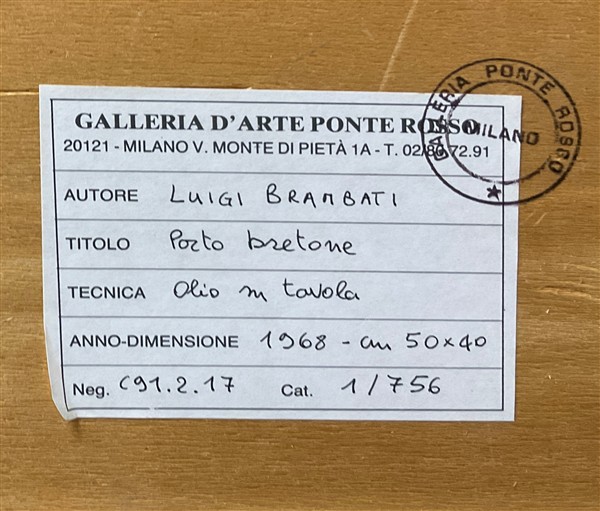 GALLERIA D'ARTE PONTE ROSSO
20121 - MILANO V. MONTE DI PIETÀ 1A - T. 02/86.72.91
AUTORE LUIGI BRAMBATI
TITOLO Porto bretone
TECNICA Olio su tavola
ANNO-DIMENSIONE 1968 - cm 50x40
Neg. C91.2.17 Cat. 1/756
GALLERIA PONTE ROSSO
MILANO